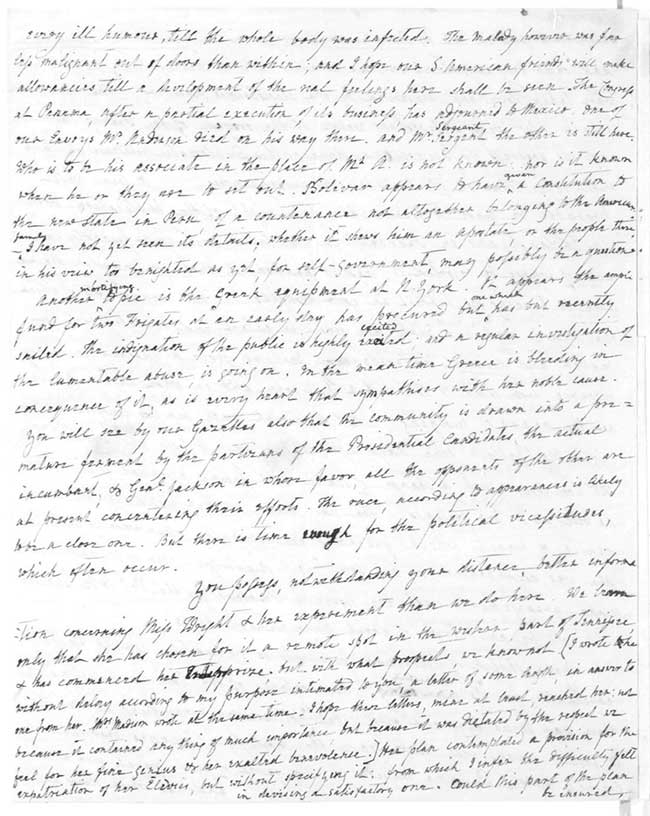 every ill humour, till the whole body was infected. The Malady however was far
less malignant out of doors than within; and I hope our S. American friends will make
allowances till a development of the real feelings here shall be seen. The Congress
at Panama after a partial execution of its business has adjourned to Mexico. One of
our Envoys Mr. Anderson died on his way there. and Mr. Sergeant the other is still here.
Who is to be his associate in the place of Mr. A. is not known. nor is it known
when he or they are to set out. Bolivar appears to have given a Constitution to
the new State in Peru of a countenance not altogether belonging to the American
family. I have not yet seen its details. whether it shews him an apostate, or the people there
in his view too benighted as yet for self-government, may possibly be a question.
Another mortifying topic is the Greek equipment at N. York. It appears the ample
fund for two Frigates at an early day has procured but one which has but recently
sailed. the indignation of the public is highly excited; and a regular investigation of
the lamentable abuse is going on. In the mean time Greece is bleeding in
consequence of it, as is every heart that sympathises with her noble cause.
You will see by our Gazettes also that the community is drawn into a pre=
mature ferment by the partizans of the Presidential Candidates, the actual
incumbent, & Genl. Jackson in whose favor, all the opponents of the other are
at present concentrating their efforts. The race, according to appearances is likely
to be a close one. But there is time enough for the political vicissitudes,
which often occur.
You possess, notwithstanding your distance, better informa
-tion concerning Miss Wright & her experiment than we do here. We learn
only that she has chosen for it a remote spot in the western part of Tennissee
& has commenced her Enterprize. but with what prospects we know not [I wrote to her
without delay according to my purpose intimated to you, a letter of some length, in answer to
one from her. Mrs Madison wrote at the same time. I hope these letters, mine at least, reached her: not
because it contained any thing of much importance but because it was dictated by the respect we
feel for her fine genius & her exalted benevolence.] Her plan contemplated a provision for the
expatriation of her Elèves, but without specifying it; from which I infer the difficulty felt
in devising a satisfactory one. Could this part of the plan
be insured,